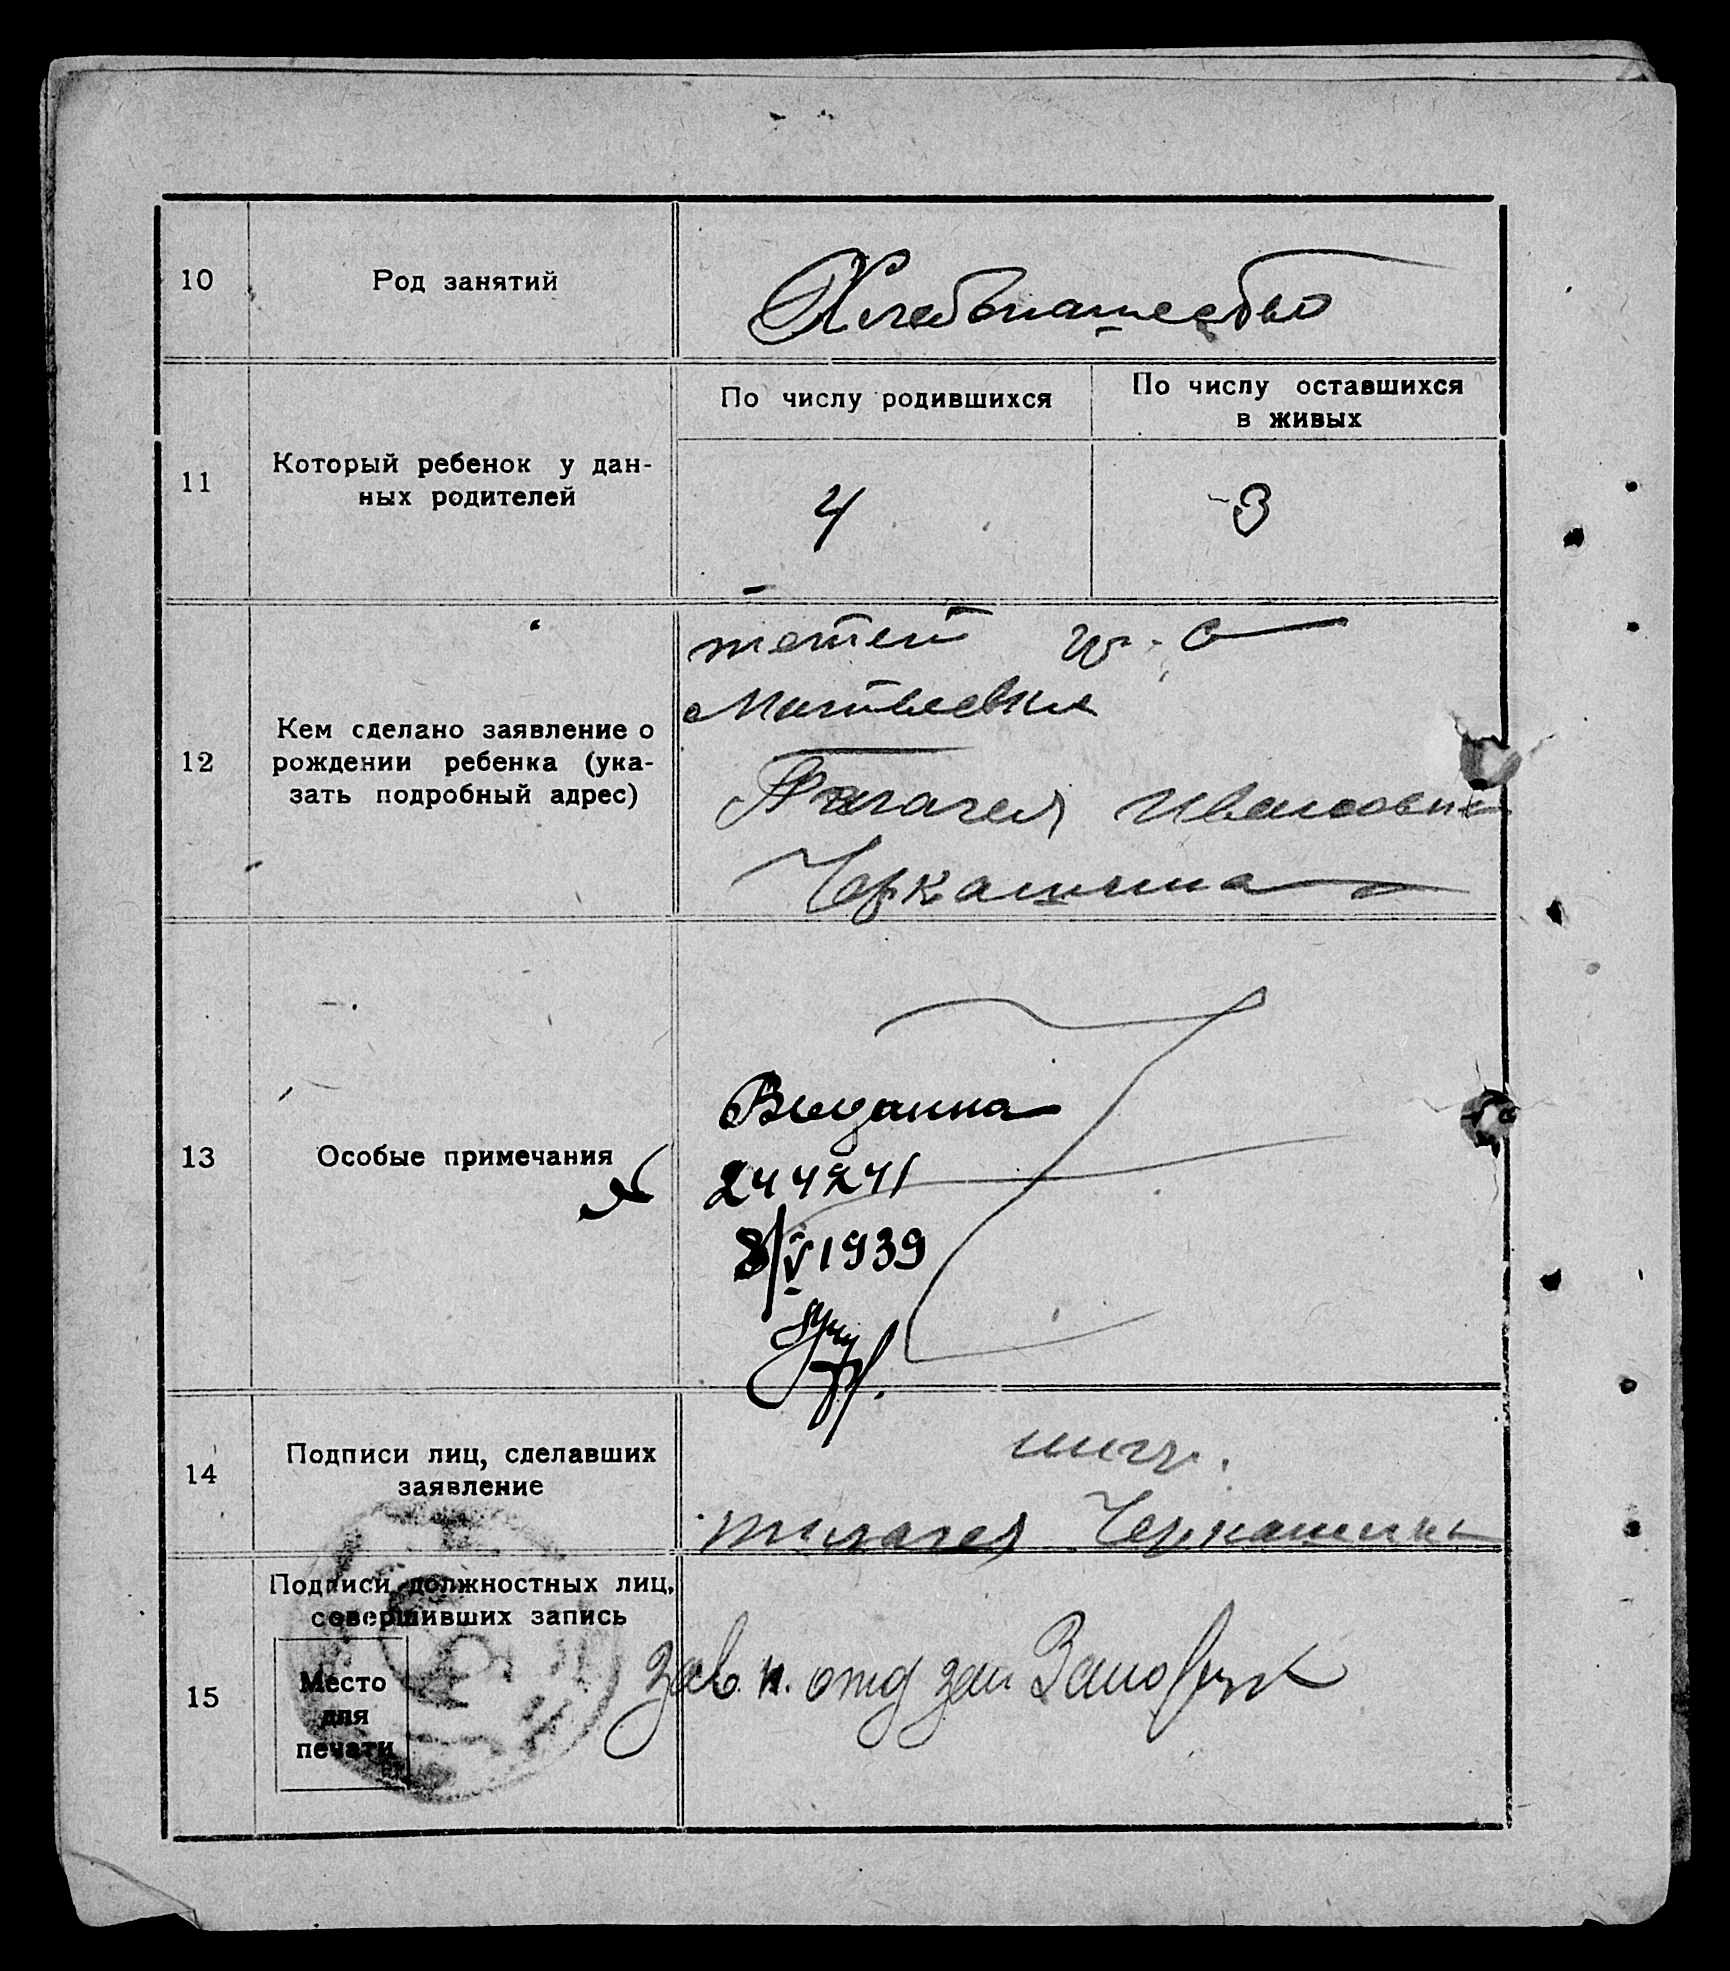 10
Род занятий
Хлебопашество
11
Который ребенок у дан-
ных родителей
По числу родившихся
По числу оставшихся
в живых
4
3
12
Кем сделано заявление о
рождении ребенка (ука-
зать подробный адрес)
тетей гр. с
Матвеевки
Ивановна
Черкашина
13
Особые примечания
Выданна
244241
8/V 1939
14
Подписи лиц, сделавших
заявление
негр.
Черкашина
15
Подписи должностных лиц,
совершивших запись
Место
для
печати
Зав. п. отд